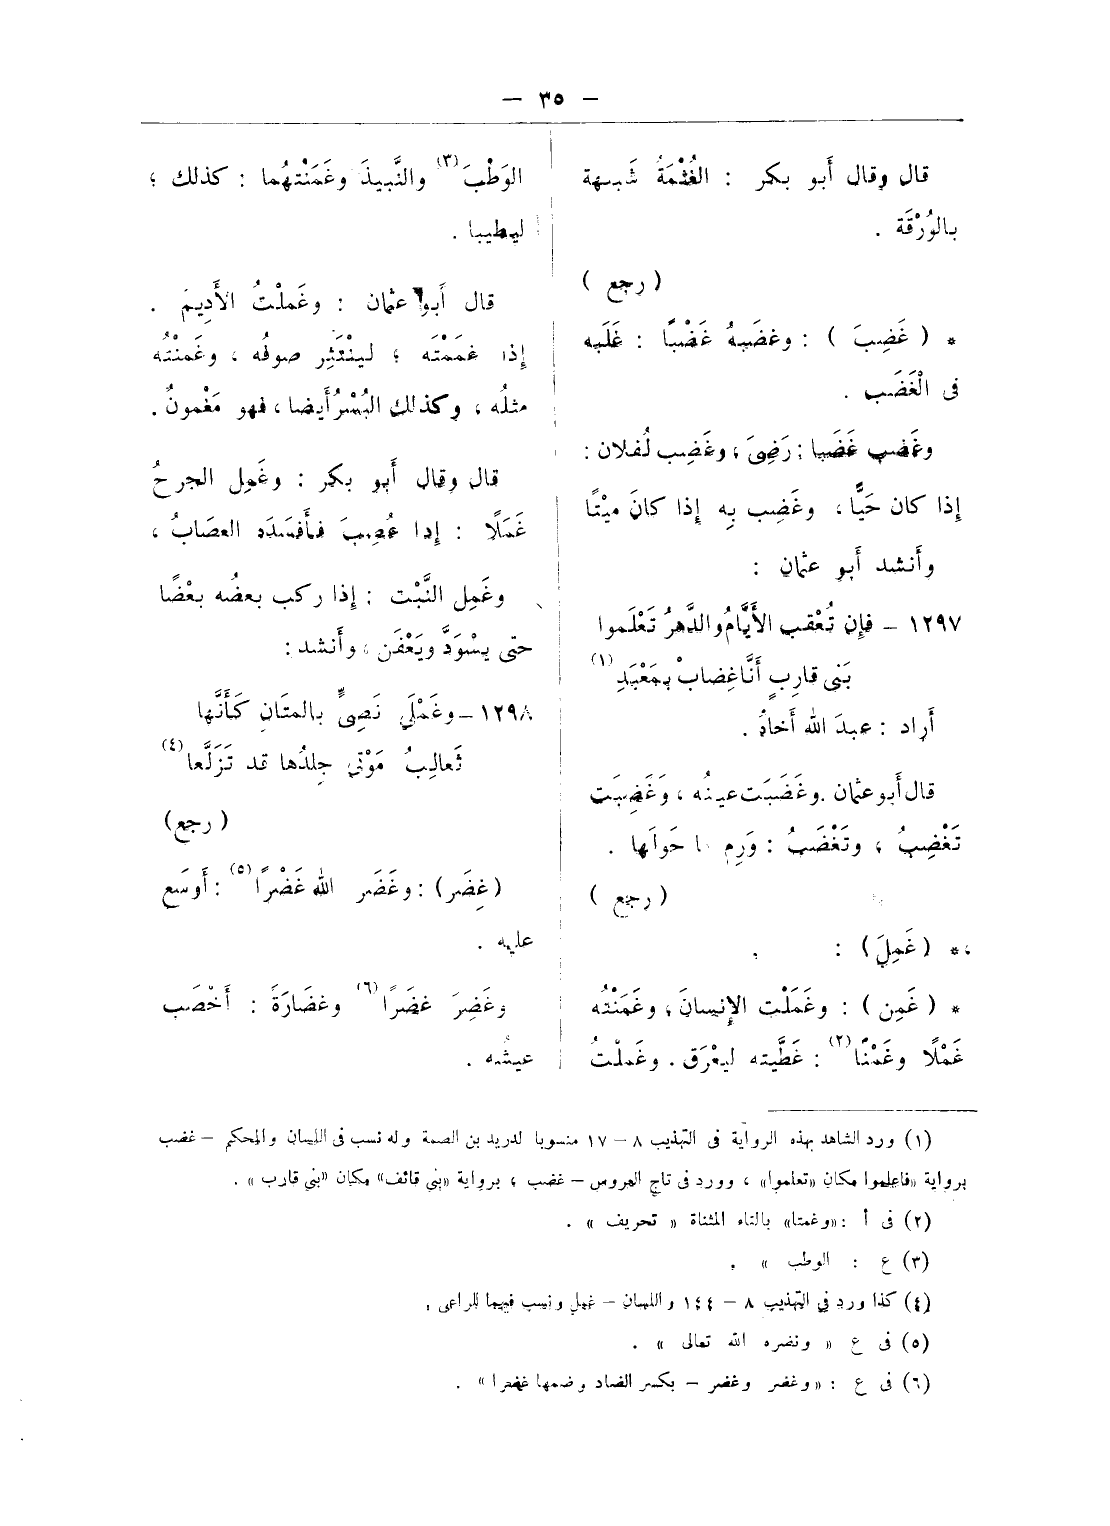 — ٣٥ —
قال وقال أَبو بكر : الغُثْمَةُ شَبيهة
بالوُرْقَة .
( رجع )
* ( غَضِبَ ) : وغضَبهُ غَضْبًا : غَلَبه
فى الْغَضَب .
وغَضِب غَضَبا : رَضِىَ ، وغَضِب لُفلان :
إذا كان حَيًّا ، وغَضِب بِه إذا كانَ ميْتًا
وأَنشد أَبو عثمان :
١٢٩٧ – فإِن تُعْقب الأَيَّامُ والدَّهرُ تَعْلَموا
بَنى قارِبٍ أَنَّا غِضابٌ بِمَعْبَدِ (١)
أَراد : عبدَ الله أَخاهُ .
قال أَبو عثمان . وغَضَبَت عينُه ، وَغَضِبَت
تَغْضِبُ ، وتَغْضَبُ : وَرِم ما حَولَها .
( رجع )
* ( غَمِلَ ) :
* ( غَمِن ) : وغَمَلْت الإِنسانَ ، وغَمَنْتُه
غَمْلًا وغَمْنًا (٢) : غَطَّيته ليعْرَق . وغَملْتُ
الوَطْبَ (٣) والنَّبيذَ وغَمَنْتهُما : كذلك ؛
ليطيبا .
قال أَبو عثمان : وغَملْتُ الأَدِيمَ .
إِذا غمَمْتَه ؛ لينْتَثِر صوفُه ، وغَمنْتُه
مثلُه ، وكذلك البُسْرُ أَيضا ، فهو مَغْمونٌ .
قال وقال أَبو بكر : وغَمِل الجرحُ
غَمَلًا : إذا عُصِبَ فأَفسَدَه العصَابُ ،
وغَمِل النَّبْت : إِذا ركب بعضُه بعْضًا
حتى يسْوَدَّ ويَعْفَن ، وأَنشد :
١٢٩٨ – وغَمْلَي نَصِىٍّ بالمتَانِ كَأَنَّها
ثَعالِبُ مَوْتى جِلدُها قد تَزَلَّعا (٤)
( رجع )
( غِضَر ) : وغَضَر الله غَضْرًا (٥) : أَوسَع
عليه .
وغَضِرَ غضَرًا (٦) وغضَارَةً : أَخْصَب
عيشُه .
(١) ورد الشاهد بهذه الرواية فى التهذيب ٨ – ١٧ منسوبا لدريد بن الصمة وله نسب فى اللسان والمحكم – غضب
برواية «فاعلموا مكان «تعلموا» ، وورد فى تاج العروس – غضب ؛ برواية «بني قائف» مكان «بني قارب» .
(٢) فى أ : «وغمتا» بالتاء المثناة « تحريف » .
(٣) ع : الوطب » .
(٤) كذا ورد فى التهذيب ٨ – ١٤٤ واللسان – غمل ونسب فيهما للراعى .
(٥) فى ع « ونضره الله تعالى » .
(٦) فى ع : «وغضر وغضر – بكسر الضاد وضمها غضرا» .